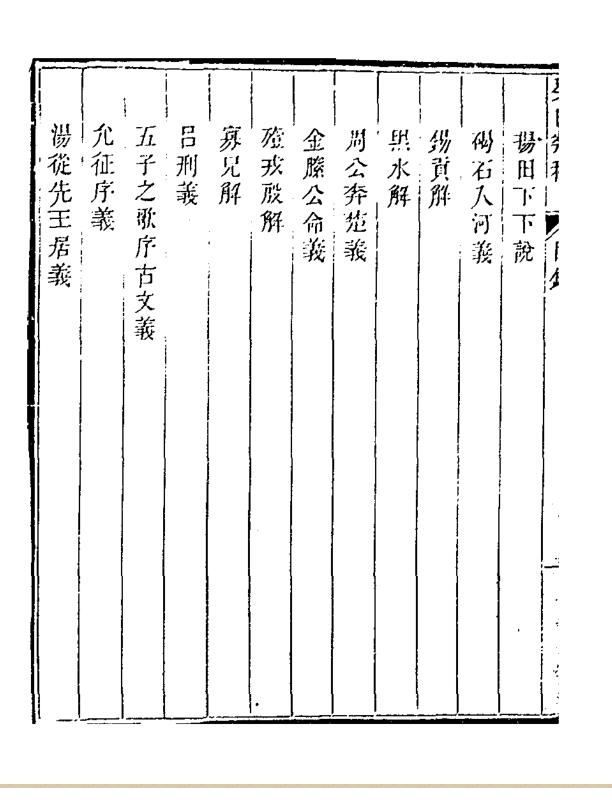 揚田下下說
碣石入河義
錫貢解
黑水解
周公奔楚義
金縢公命義
殪戎殷解
寡兄解
呂刑義
五子之歌序古文義
允征序義
湯從先王居義